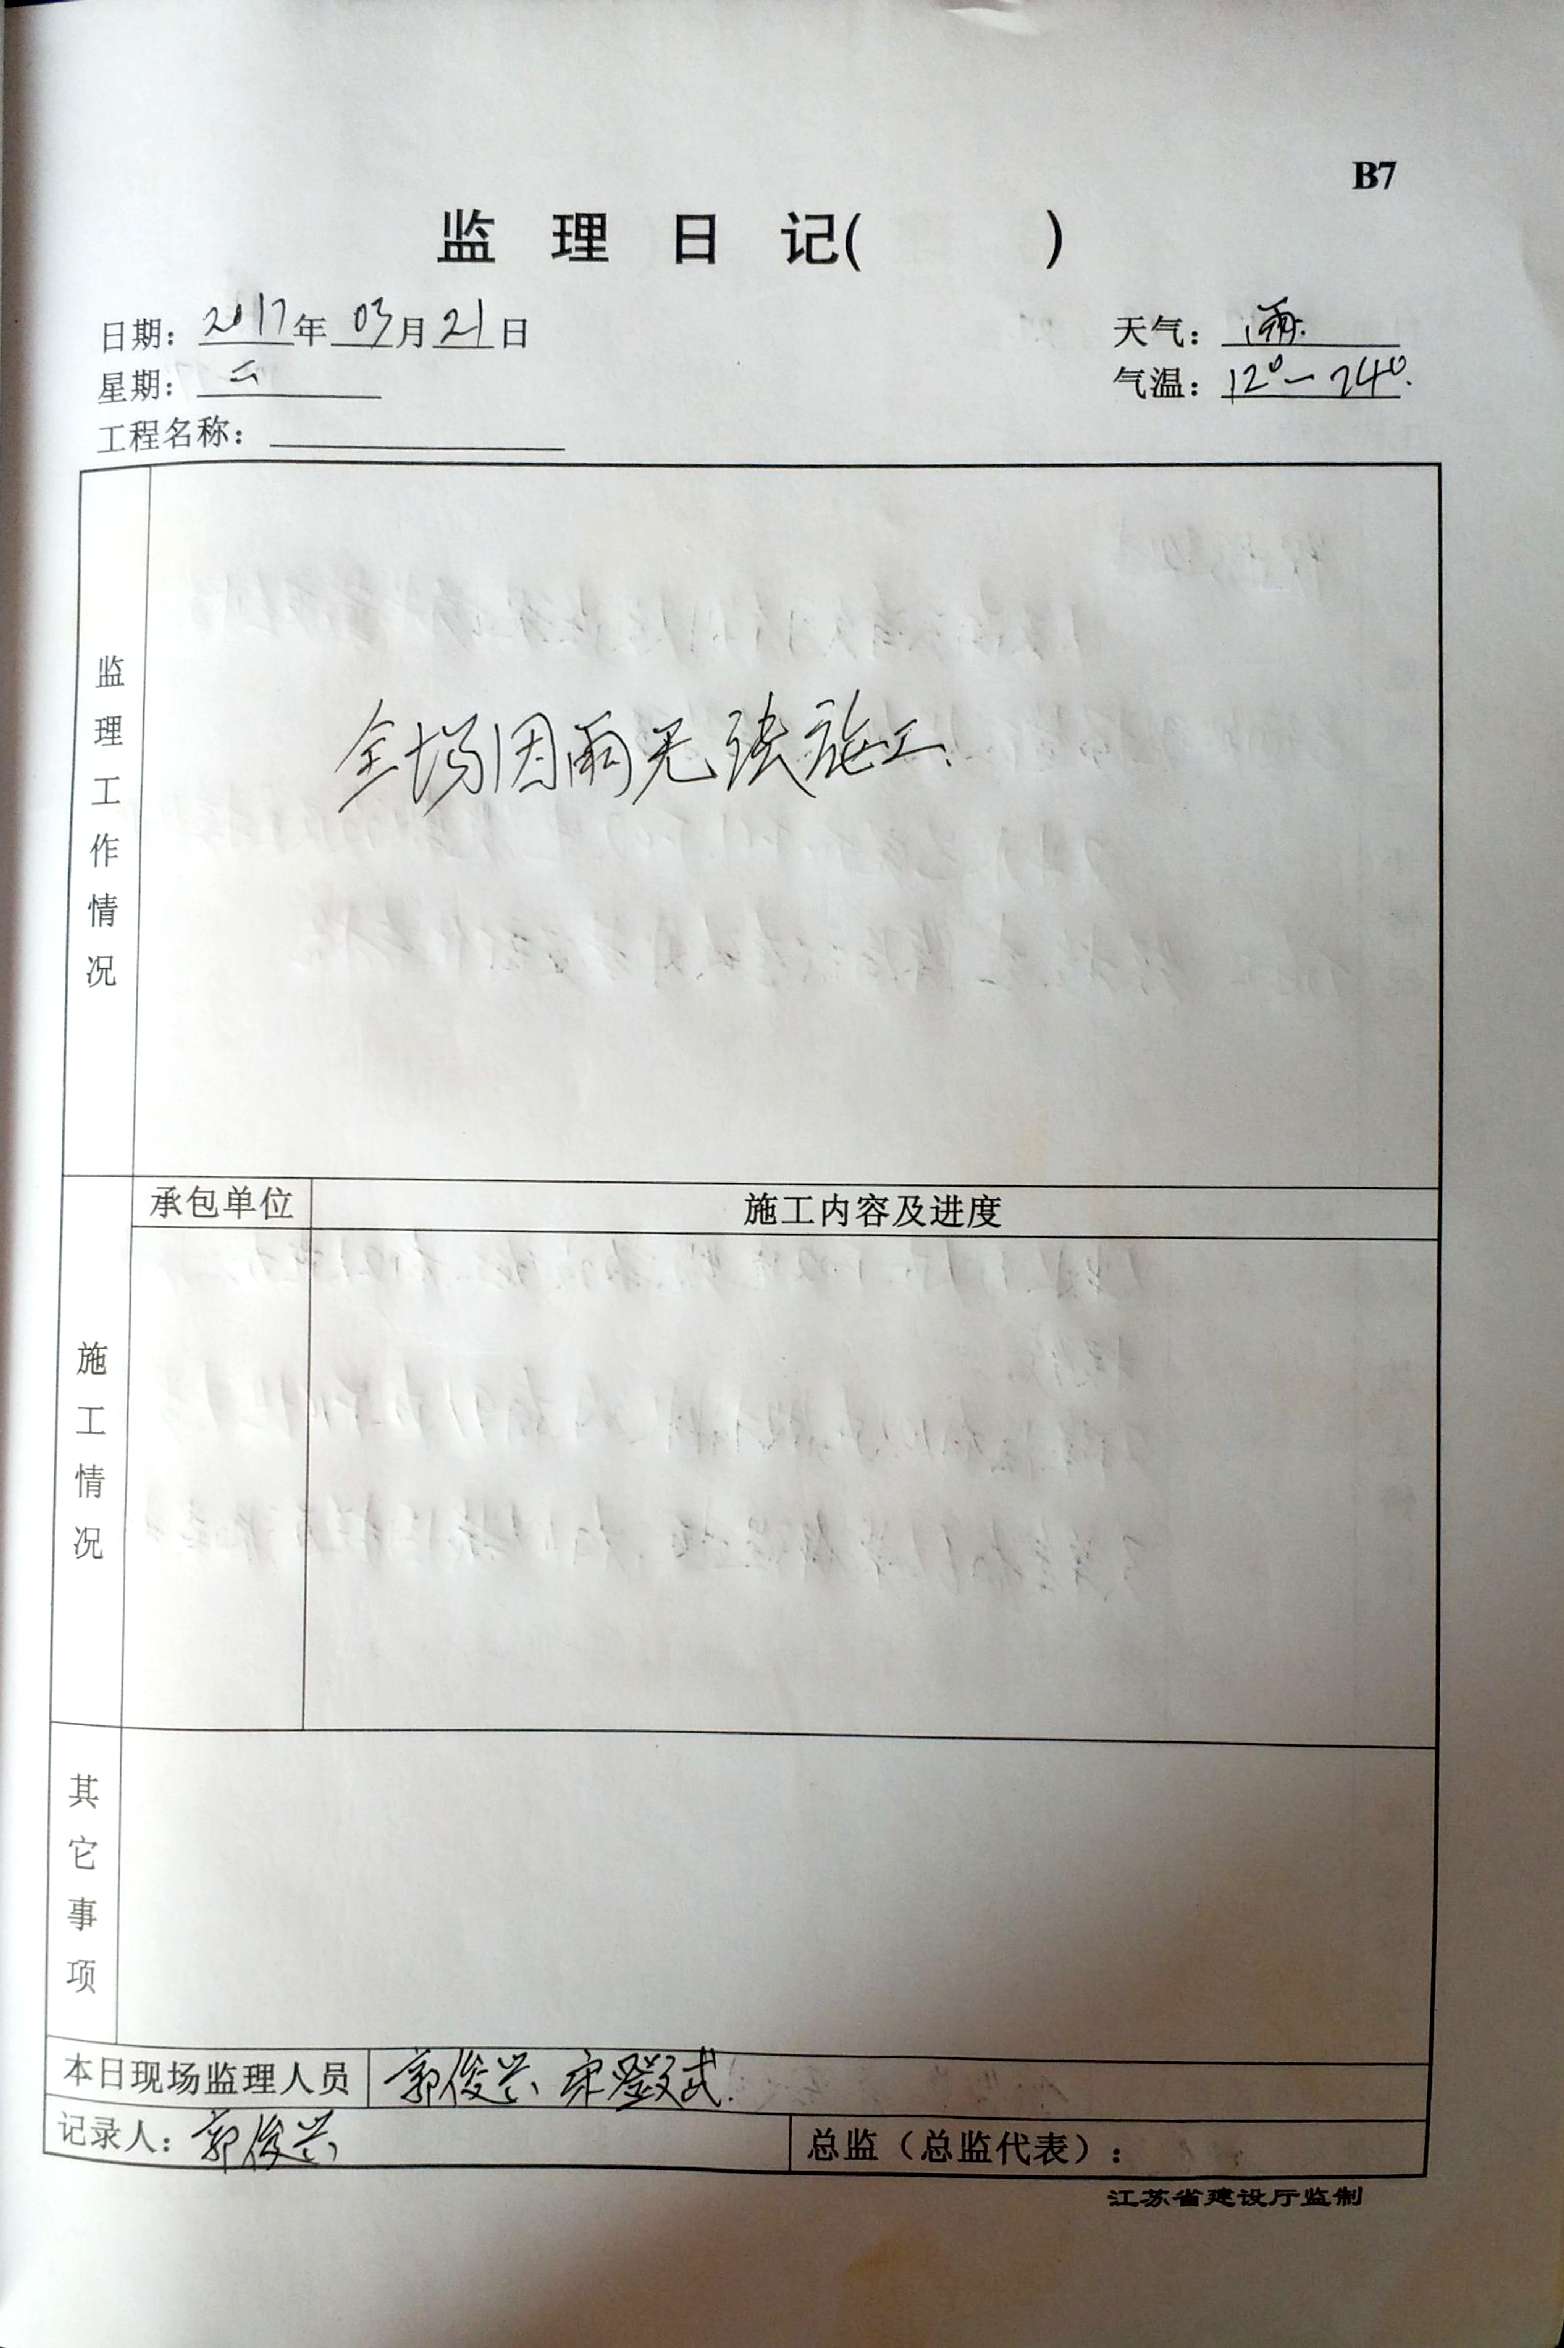 B7
监理日记( )
日期：2017年03月21日
天气：雨.
星期：二
气温：12°—24°.
工程名称：
监理工作情况
全场因雨无法施工.
承包单位
施工内容及进度
施工情况
其它事项
本日现场监理人员 郭俊兴
记录人：郭俊兴
总监（总监代表）：
江苏省建设厅监制